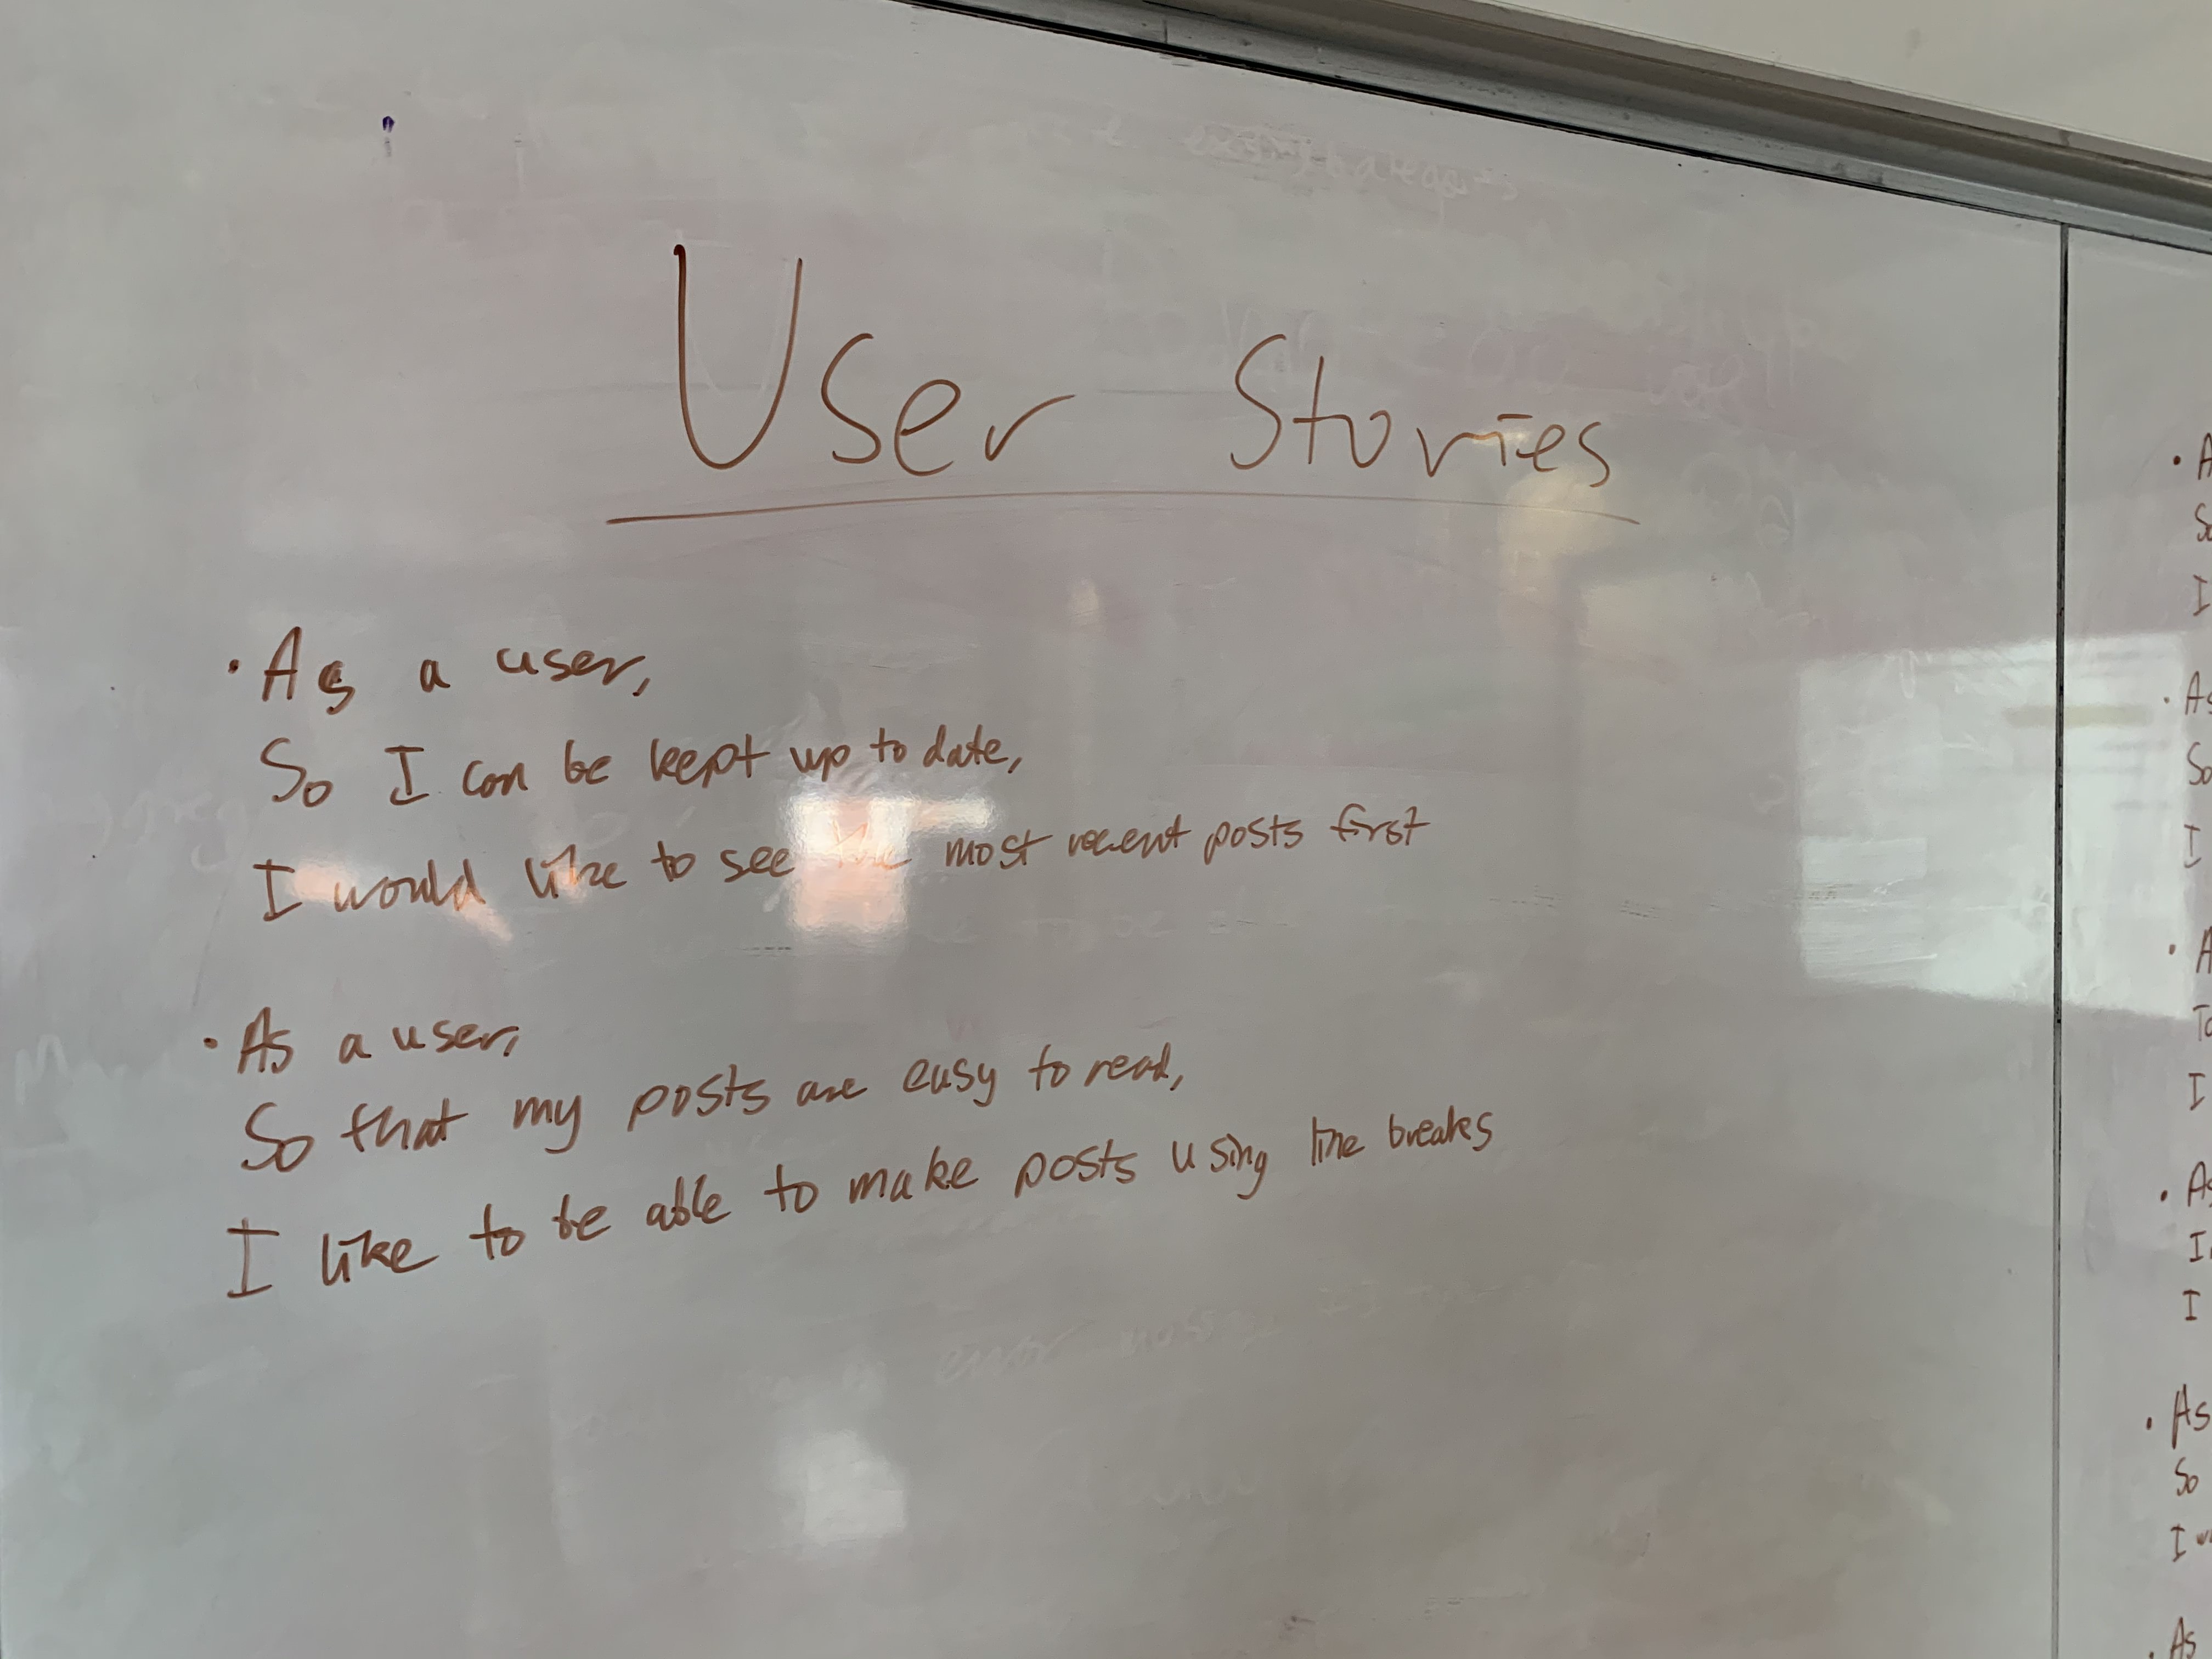 User Stories
• As a user,
So I can be kept up to date,
I would like to see the most recent posts first
• As a user,
So that my posts are easy to read,
I like to be able to make posts using line breaks
• A
So
I
• As
So
I
• A
To
I
• As
I
I
• As
So
I w
• As